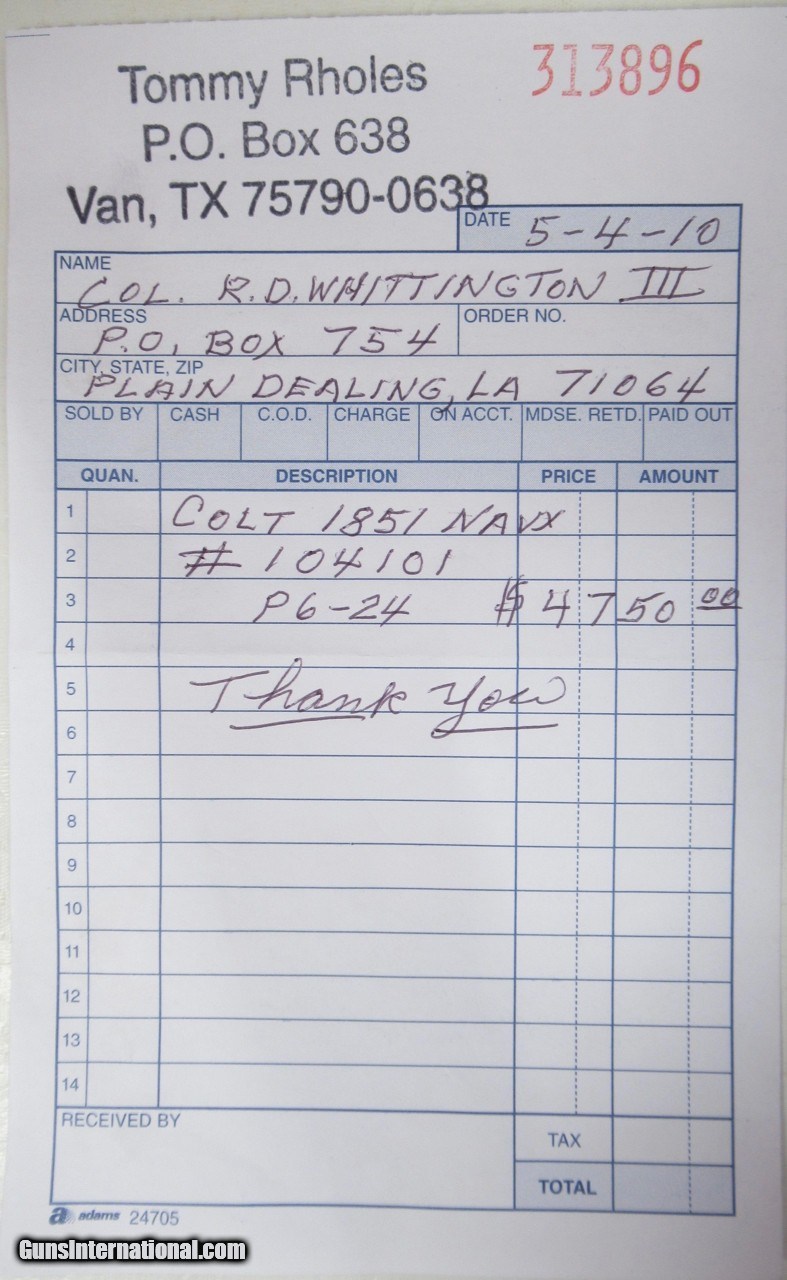 Tommy Rholes
313896
P.O. Box 638
Van, TX 75790-0638
DATE 5-4-10
NAME
COL. R.D. WHITTINGTON III
ADDRESS
P.O. BOX 754
ORDER NO.
CITY, STATE, ZIP
PLAIN DEALING, LA 71064
SOLD BY CASH C.O.D. CHARGE ON ACCT. MDSE. RETD. PAID OUT
QUAN. DESCRIPTION PRICE AMOUNT
1 COLT 1851 NAVY
2 # 104101
3 P6-24 $4750 00
4
5 Thank You
6
7
8
9
10
11
12
13
14
RECEIVED BY
TAX
TOTAL
a adams 24705
GunsInternational.com